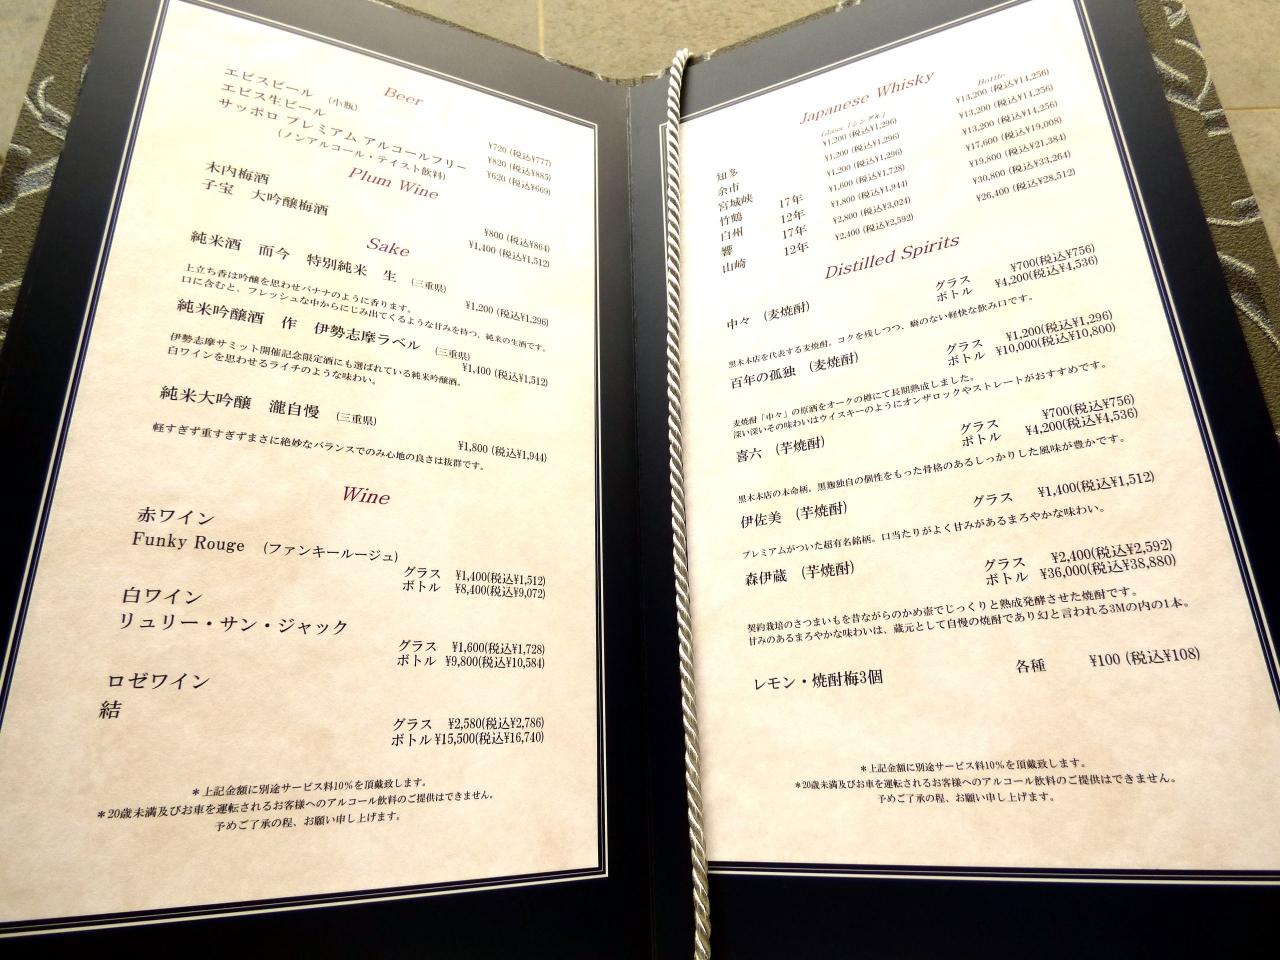 Beer
エビスビール (小瓶) ¥720 (税込¥777)
エビス生ビール ¥820 (税込¥885)
サッポロ プレミアム アルコールフリー ¥620 (税込¥669)
(ノンアルコール・テイスト飲料)
Plum Wine
木内梅酒 ¥800 (税込¥864)
子宝 大吟醸梅酒 ¥1,400 (税込¥1,512)
Sake
純米酒 而今 特別純米 生 (三重県) ¥1,200 (税込¥1,296)
上立ち香は吟醸を思わせバナナのように香ります。
口に含むと、フレッシュな中からにじみ出てくるような甘みを持つ、純米の生酒です。
純米吟醸酒 作 伊勢志摩ラベル (三重県) ¥1,400 (税込¥1,512)
伊勢志摩サミット開催記念限定酒にも選ばれている純米吟醸酒。
白ワインを思わせるライチのような味わい。
純米大吟醸 瀧自慢 (三重県) ¥1,800 (税込¥1,944)
軽すぎず重すぎずまさに絶妙なバランスでのみ心地の良さは抜群です。
Wine
赤ワイン
Funky Rouge (ファンキールージュ)
グラス ¥1,400(税込¥1,512)
ボトル ¥8,400(税込¥9,072)
白ワイン
リュリー・サン・ジャック
グラス ¥1,600(税込¥1,728)
ボトル ¥9,800(税込¥10,584)
ロゼワイン
結
グラス ¥2,580(税込¥2,786)
ボトル ¥15,500(税込¥16,740)
＊上記金額に別途サービス料10%を頂戴致します。
＊20歳未満及びお車を運転されるお客様へのアルコール飲料のご提供はできません。
予めご了承の程、お願い申し上げます。
Japanese Whisky
Glass 「シングル」 Bottle
知多 ¥1,200 (税込¥1,296) ¥13,200 (税込¥14,256)
余市 ¥1,200 (税込¥1,296) ¥13,200 (税込¥14,256)
宮城峡 ¥1,200 (税込¥1,296) ¥13,200 (税込¥14,256)
竹鶴 17年 ¥1,600 (税込¥1,728) ¥17,600 (税込¥19,008)
白州 12年 ¥1,800 (税込¥1,944) ¥19,800 (税込¥21,384)
響 17年 ¥2,800 (税込¥3,024) ¥30,800 (税込¥33,264)
山崎 12年 ¥2,400 (税込¥2,592) ¥26,400 (税込¥28,512)
Distilled Spirits
中々 (麦焼酎) グラス ¥700(税込¥756)
ボトル ¥4,200(税込¥4,536)
黒木本店を代表する麦焼酎。コクを残しつつ、癖のない軽快な飲み口です。
百年の孤独 (麦焼酎) グラス ¥1,200(税込¥1,296)
ボトル ¥10,000(税込¥10,800)
麦焼酎「中々」の原酒をオークの樽にて長期熟成しました。
深い深いその味わいはウイスキーのようにオンザロックやストレートがおすすめです。
喜六 (芋焼酎) グラス ¥700(税込¥756)
ボトル ¥4,200(税込¥4,536)
黒木本店の本命柄。黒麹独自の個性をもった骨格のあるしっかりした風味が豊かです。
伊佐美 (芋焼酎) グラス ¥1,400(税込¥1,512)
プレミアムがついた超有名銘柄。口当たりがよく甘みがあるまろやかな味わい。
森伊蔵 (芋焼酎) グラス ¥2,400(税込¥2,592)
ボトル ¥36,000(税込¥38,880)
契約栽培のさつまいもを昔ながらのかめ壺でじっくりと熟成発酵させた焼酎です。
甘みのあるまろやかな味わいは、蔵元として自慢の焼酎であり幻と言われる3Mの内の1本。
レモン・焼酎梅3個 各種 ¥100 (税込¥108)
＊上記金額に別途サービス料10%を頂戴致します。
＊20歳未満及びお車を運転されるお客様へのアルコール飲料のご提供はできません。
予めご了承の程、お願い申し上げます。